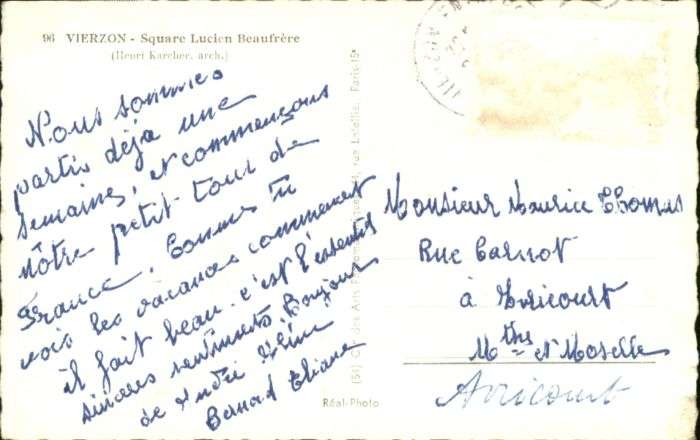 96 VIERZON - Square Lucien Beaufrère
(Henri Karcher, arch.)
Nous sommes
partis déjà une
semaines, et commençons
nôtre petit tour de
France. Comme tu
vois les vacances commencent
il fait beau. c'est l'essentiel
sincères sentiments. Bonjour
de André
Bernard Eliane
Monsieur Maurice Thomas
Rue Carnot
à Avricourt
Mthe et Moselle
Avricourt
Réal-Photo
rue Letellier, Paris-15e